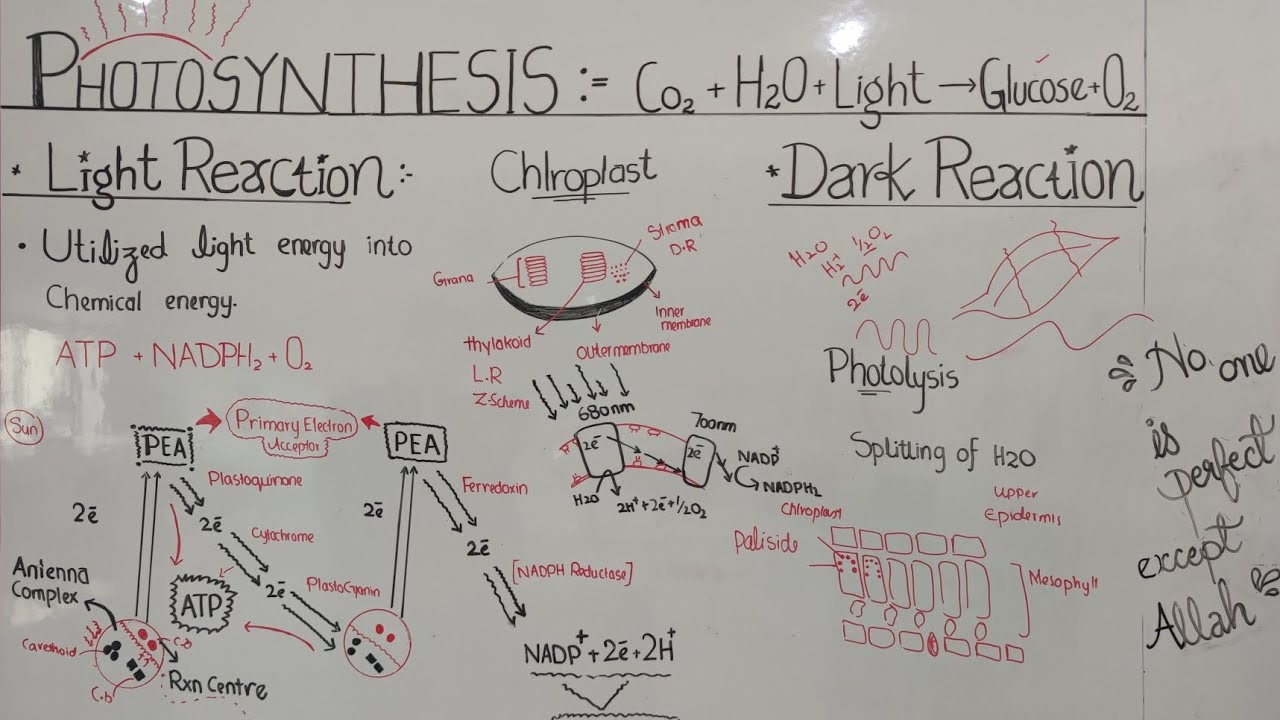 PHOTOSYNTHESIS := Co₂ + H₂O + Light → Glucose + O₂
* Light Reaction :-
• Utilized light energy into
Chemical energy.
ATP + NADPH₂ + O₂
Sun
PEA
Primary Electron
Acceptor
PEA
Plastoquinone
2e̅
2e̅
Cytachrome
2e̅
PlastoCyanin
ATP
Anienna
Complex
Carethoid
C.a
C.b
Rxn Centre
2e̅
Ferredoxin
2e̅
[NADPH Reductase]
NADP⁺ + 2e̅ + 2H⁺
Chlroplast
Stroma
D.R
Grana
Inner
membrane
thylakoid
outer membrane
L.R
Z-Scheme
680nm
700nm
2e̅
2e̅
NADP⁺
NADPH₂
H₂O
2H⁺ + 2e̅ + 1/2O₂
* Dark Reaction
H₂O
H₂⁺ 1/2O₂
2e̅
Photolysis
Splitting of H₂O
upper
Epidermis
Chloroplast
Paliside
Mesophyll
No one
is
perfect
except
Allah